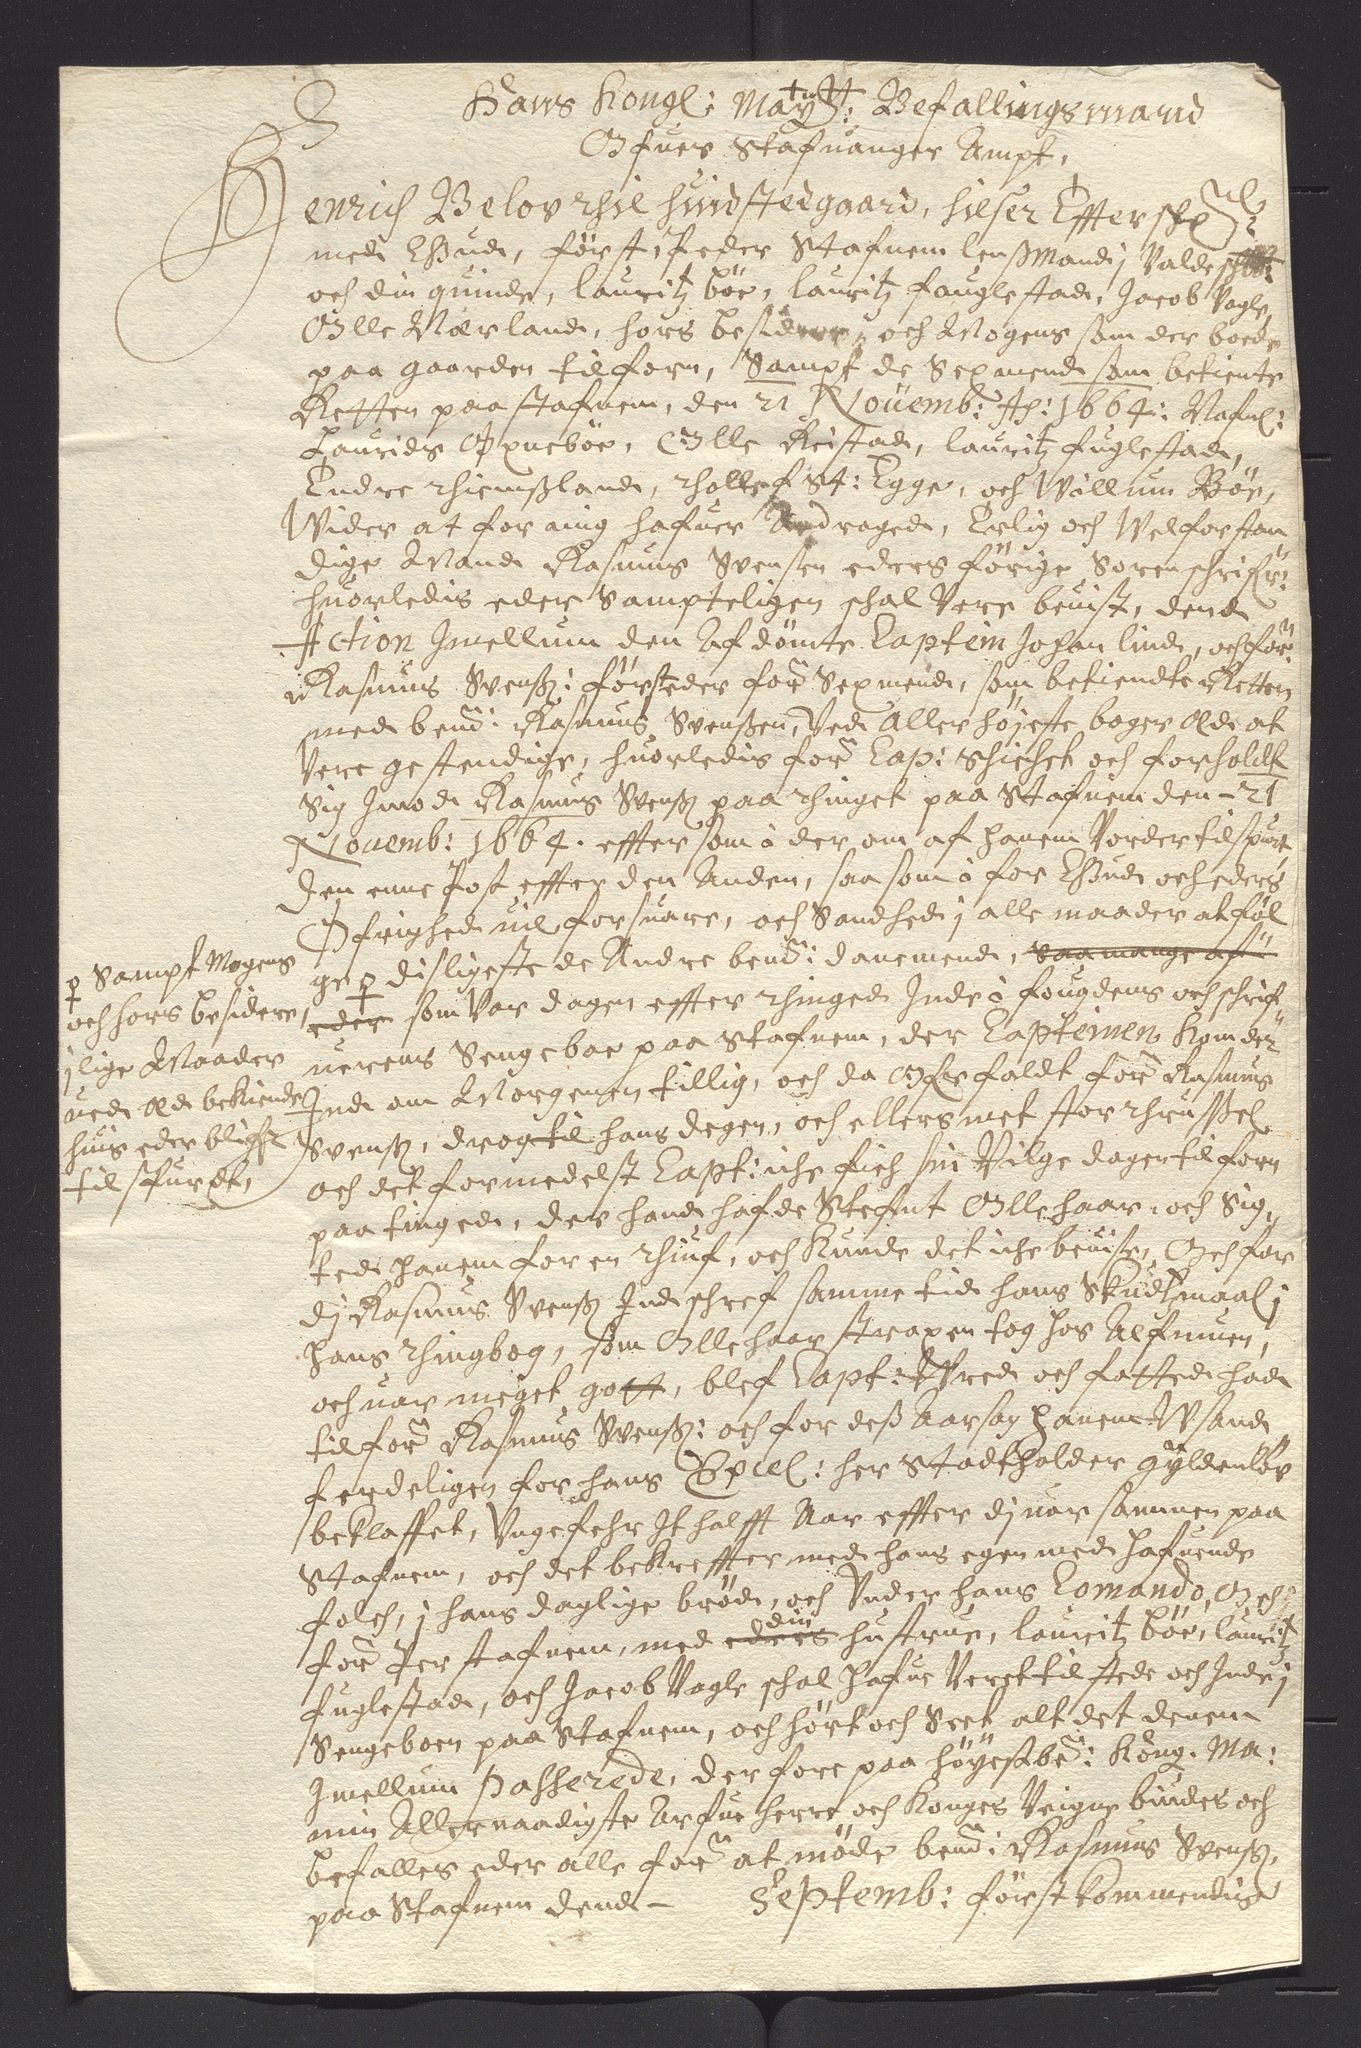 Hans Kongl: May:tts: Befallingsmand
Ofuer Stafuanger Ampt,
Henrich Below thil Hundstedgaard, hilser Effterschr:
med Gud, först P Peder Stafnem lensmand j Valde
och din quinde, lauritz böe, lauritz fuglestad, Jacob Vagle,
Olle Nærland, hors besiddere, och Mogens som der boede
paa gaarden tilforn, Sampt de Sexmend som betiente
Retten paa stafnem, den 21 Nouemb: Ao: 1664: Nafnl:
Laurids Opneböe, Olle Reistad, lauritz fuglestad,
Endre thiemsland, thollef St: Egge, och Willum Böe,
Wider at for mig hafuer Andraged, Erlig och Welforstan
dige Mand Rasmus Suensen eders förige Sorenschrifr:
huorledis eder Sampteligen schal Vere beuist, dend
Action Imellum den Afdömte Captein Johan lind, och for:
Rasmus Suensz: försteder for: Sexmend, som betiendte Retten
med bend: Rasmus Suenssen, Ved Allerhöjeste boger Æd at
Vere gestendige, huorledis for: Cap: Shichet och forholdt
Sig Imod Rasmus Suensz paa thinget paa Stafnem den 21
Nouemb: 1664. effter som i der om af hanem Vorder tilspurt
Den enne Post effter den Anden, saa som i for Gud och eders
Öfrighed uil forsuare, och Sandhed j alle maader at föl
ge ꝑ disligeste de Andre bend: danemend, saa mange af
eder som Var dagen effter thinged Inde i fougdens och schrif
uerens Sengeboe paa Stafnem, der Capteinen Kom der
Ind om Morgenen tillig, och da Ofrfaldt for: Rasmus
Suensz, drog til hans degen, och ellers met stor thrussel
och det formedelst Capt: iche fich sin Vilge dagen tilforn
paa tinged, der hand hafde Stefnt Olle haar, och Sig
ted hanem for en thiuf, och Kunde det iche beuise, Och for
dj Rasmus Suensz Indschref samme tid hans Skudsmaal j
hans thingbog, som Olle haar strapen tog hos Alfmuen,
och uar meget gott, blef Capt: Vred och fatted had
til for: Rasmus Suensz: och for dess Aarsag hanem Wsand
ferdeligen for hans Excell: her Stadtholder gyldenlöv
beklaffet, Vngefehr It halfft Aar effter dj uar sammen paa
Stafnem, och det bekreffter med hans egen med hafuende
folch, j hans daglige bröd, och Vnder hans Comando, Och
for: Per stafnem, med eders din hustrue, lauritz böe, lauritz
fuglestad, och Jacob Vagle schal hafue Veret tilstede och Inde j
Sengeboen paa Stafnem, och hört och Seet alt det denem
Imellum Passerede, derfore paa höyestbe: Kong. Ma:
min Allernaadigste Arfue herre och Konges Veigne biudes och
befalles eder alle for: at möde bend: Rasmus Suensz,
paa Stafnem dend — Septemb: förstkommendis
ꝑ Sampt Mogens
och hors besidere,
j lige Maader
ued Æd bekiende
huis eder blifft
tilspurdt,